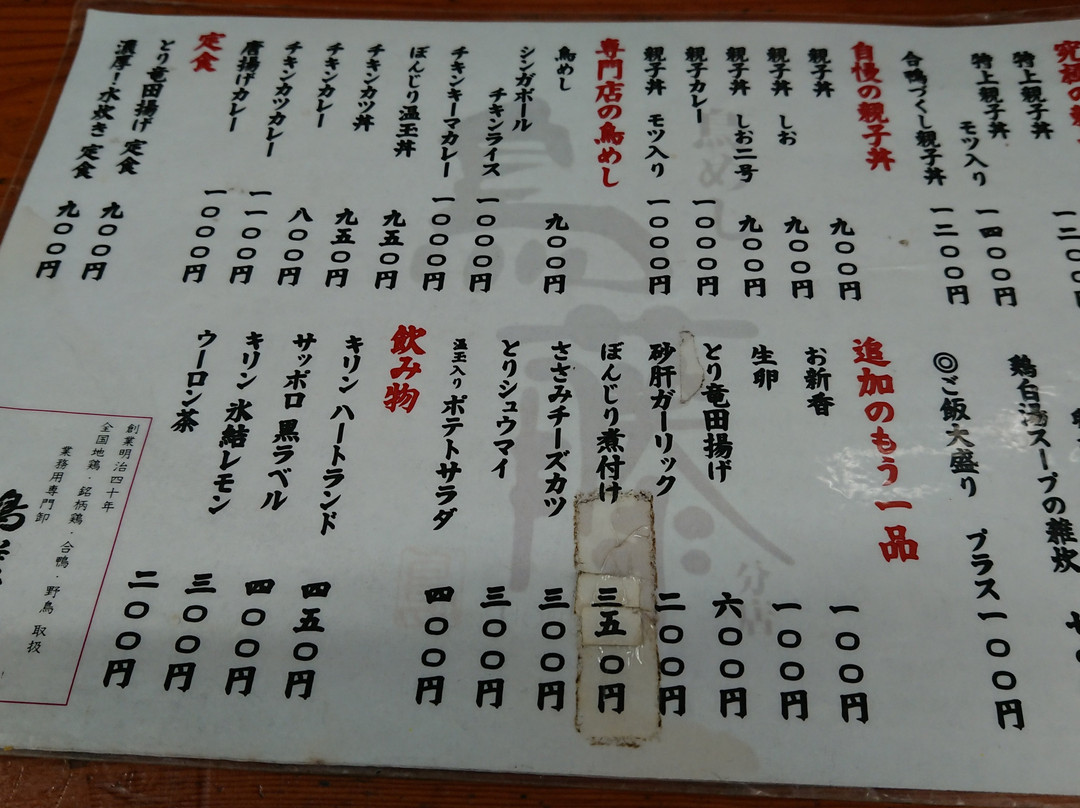 究極の
特上親子丼
特上親子丼 モツ入り 一四〇〇円
合鴨づくし親子丼 一二〇〇円
自慢の親子丼
親子丼 九〇〇円
親子丼 しお 九〇〇円
親子丼 しお二号 九〇〇円
親子カレー 一〇〇〇円
親子丼 モツ入り 一〇〇〇円
専門店の鳥めし
鳥めし 九〇〇円
シンガポール
チキンライス 一〇〇〇円
チキンキーマカレー 一〇〇〇円
ぼんじり温玉丼 九五〇円
チキンカツ丼 九五〇円
チキンカレー 八〇〇円
チキンカツカレー 一一〇〇円
唐揚げカレー 一〇〇〇円
定食
とり竜田揚げ 定食 九〇〇円
濃厚!水炊き 定食 九〇〇円
鶏白湯スープの雑炊
◎ご飯大盛り プラス一〇〇円
追加のもう一品
お新香 一〇〇円
生卵 一〇〇円
とり竜田揚げ 六〇〇円
砂肝ガーリック 二〇〇円
ぼんじり煮付け 三五〇円
ささみチーズカツ 三〇〇円
とりシュウマイ 三〇〇円
温玉入りポテトサラダ 四〇〇円
飲み物
キリン ハートランド 四五〇円
サッポロ 黒ラベル 四〇〇円
キリン 氷結レモン 三〇〇円
ウーロン茶 二〇〇円
創業明治四十年
全国地鶏・銘柄鶏・合鴨・野鳥 取扱
業務用専門卸
鳥